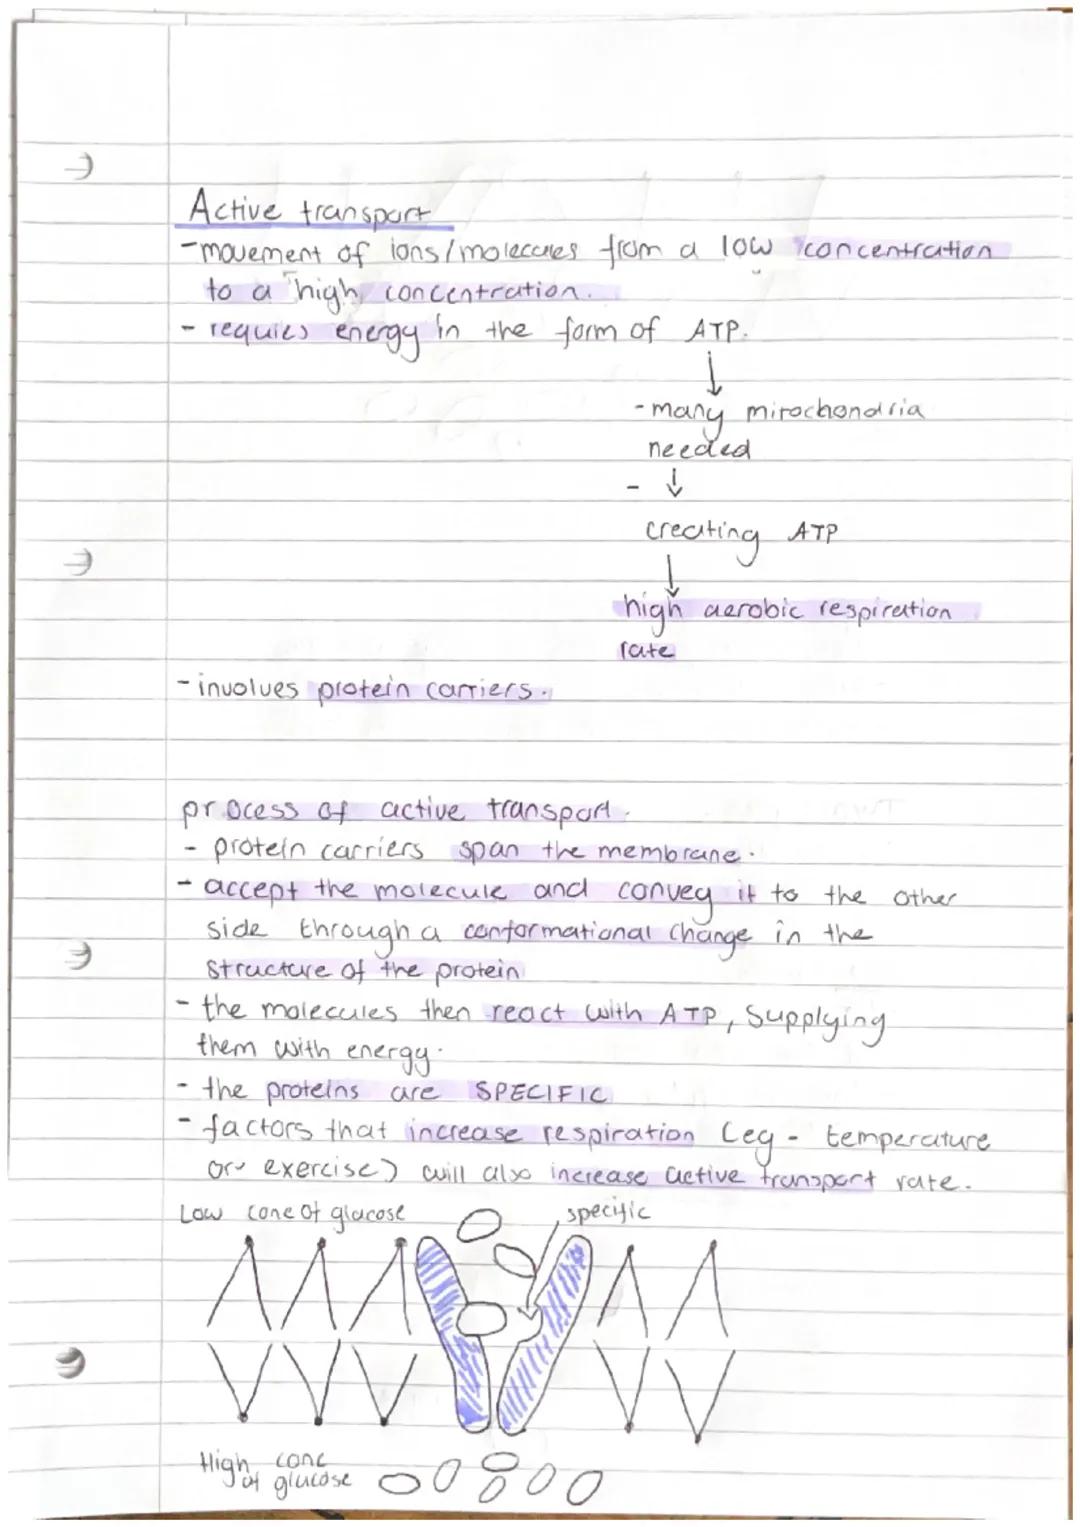 Active transport
-movement of ions/molecules from a low concentration
to a high concentration.
- requies energy in the form of ATP.
-many mitochondria
needed
-
creating ATP
high aerobic respiration
rate
-involves protein carriers.
process of active transport.
- protein carriers span the membrane.
- accept the molecule and convey it to the other
side through a conformational change in the
structure of the protein
- the molecules then react with ATP, supplying
them with energy.
- the proteins are SPECIFIC
- factors that increase respiration (eg - temperature
or exercise) will also increase active transport rate.
Low conc of glucose
specific
High conc
of glucose